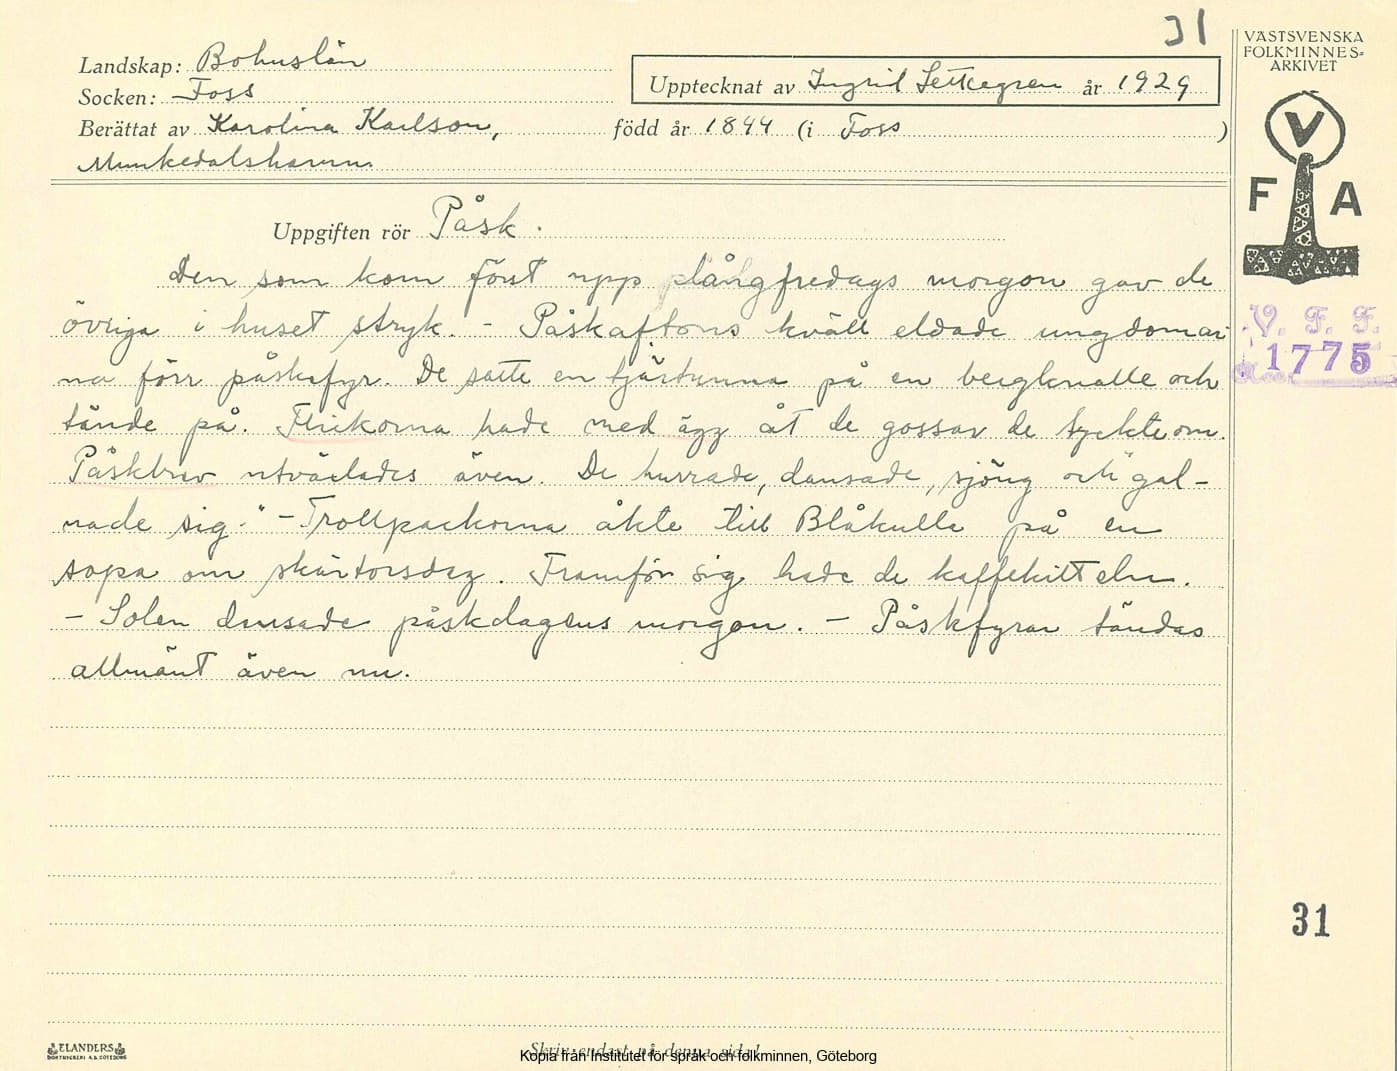 31
VÄSTSVENSKA
FOLKMINNES=
ARKIVET
Landskap: Bohuslän
Upptecknat av Ingrid Settergren år 1929
Socken: Foss
Berättat av Karolina Karlson, född år 1844 (i Foss )
Munkedalshamn
V
F A
Uppgiften rör Påsk.
Den som kom först upp på långfredags morgon gav de
övriga i huset stryk. - Påskaftons kväll eldade ungdomar
na förr påskafyr. De satte en tjärtunna på en bergknalle och
tände på. Flickorna hade med ägg åt de gossar de tyckte om.
Påskbrev utväxlades även. De hurrade, dansade, sjöng och "gal-
nade sig." - Trollpackorna åkte till Blåkulla på en
sopa om skärtorsdag. Framför sig hade de kaffekitteln.
- Solen dansade påskdagens morgon. - Påskfyrar tändas
allmänt även nu.
V. F. F.
1775
31
ELANDERS
BOKTRYCKERI A.B. GÖTEBORG
Skriv endast på denna sida!
Kopia från Institutet för språk och folkminnen, Göteborg